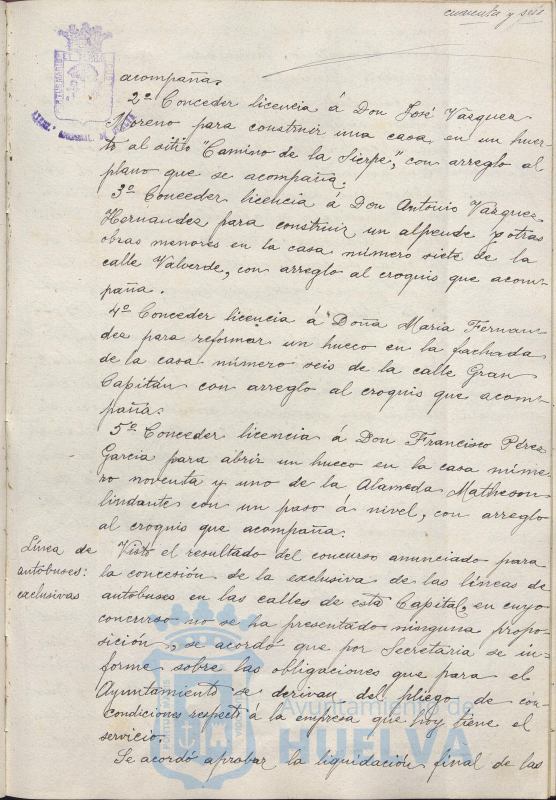 cuarenta y seis
acompaña.
2º Conceder licencia á Don José Vazquez
Moreno para construir una casa en un huer-
to al sitio "Camino de la Sierpe", con arreglo al
plano que se acompaña.
3º Conceder licencia á Don Antonio Vazquez
Hernandez para construir un alpende y otras
obras menores en la casa número siete de la
calle Valverde, con arreglo al croquis que acom-
paña.
4º Conceder licencia á Doña Maria Fernan-
dez para reformar un hueco en la fachada
de la casa número seis de la calle Gran
Capitán con arreglo al croquis que acom-
paña.
5º Conceder licencia á Don Francisco Pérez
Garcia para abrir un hueco en la casa núme-
ro noventa y uno de la Alameda Matheson
lindante con un paso á nivel, con arreglo
al croquis que acompaña.
Línea de
autobuses:
exclusivas
Visto el resultado del concurso anunciado para
la concesión de la exclusiva de las líneas de
autobuses en las calles de esta Capital, en cuyo
concurso no se ha presentado ninguna propo-
sición, se acordó que por Secretaria se in-
forme sobre las obligaciones que para el
Ayuntamiento se derivan del pliego de con-
condiciones respecto á la empresa que hoy tiene el
servicio.
Se acordó aprobar la liquidación final de las
Ayuntamiento de
HUELVA